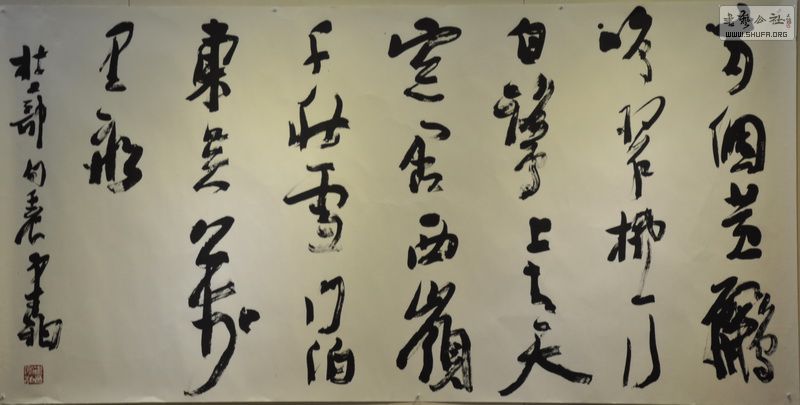 两個黄鸝
鳴翠柳一行
白鷺上青天
窓含西嶺
千秋雪門泊
東吴萬
里船
杜工部句
書藝公社
WWW.SHUFA.ORG